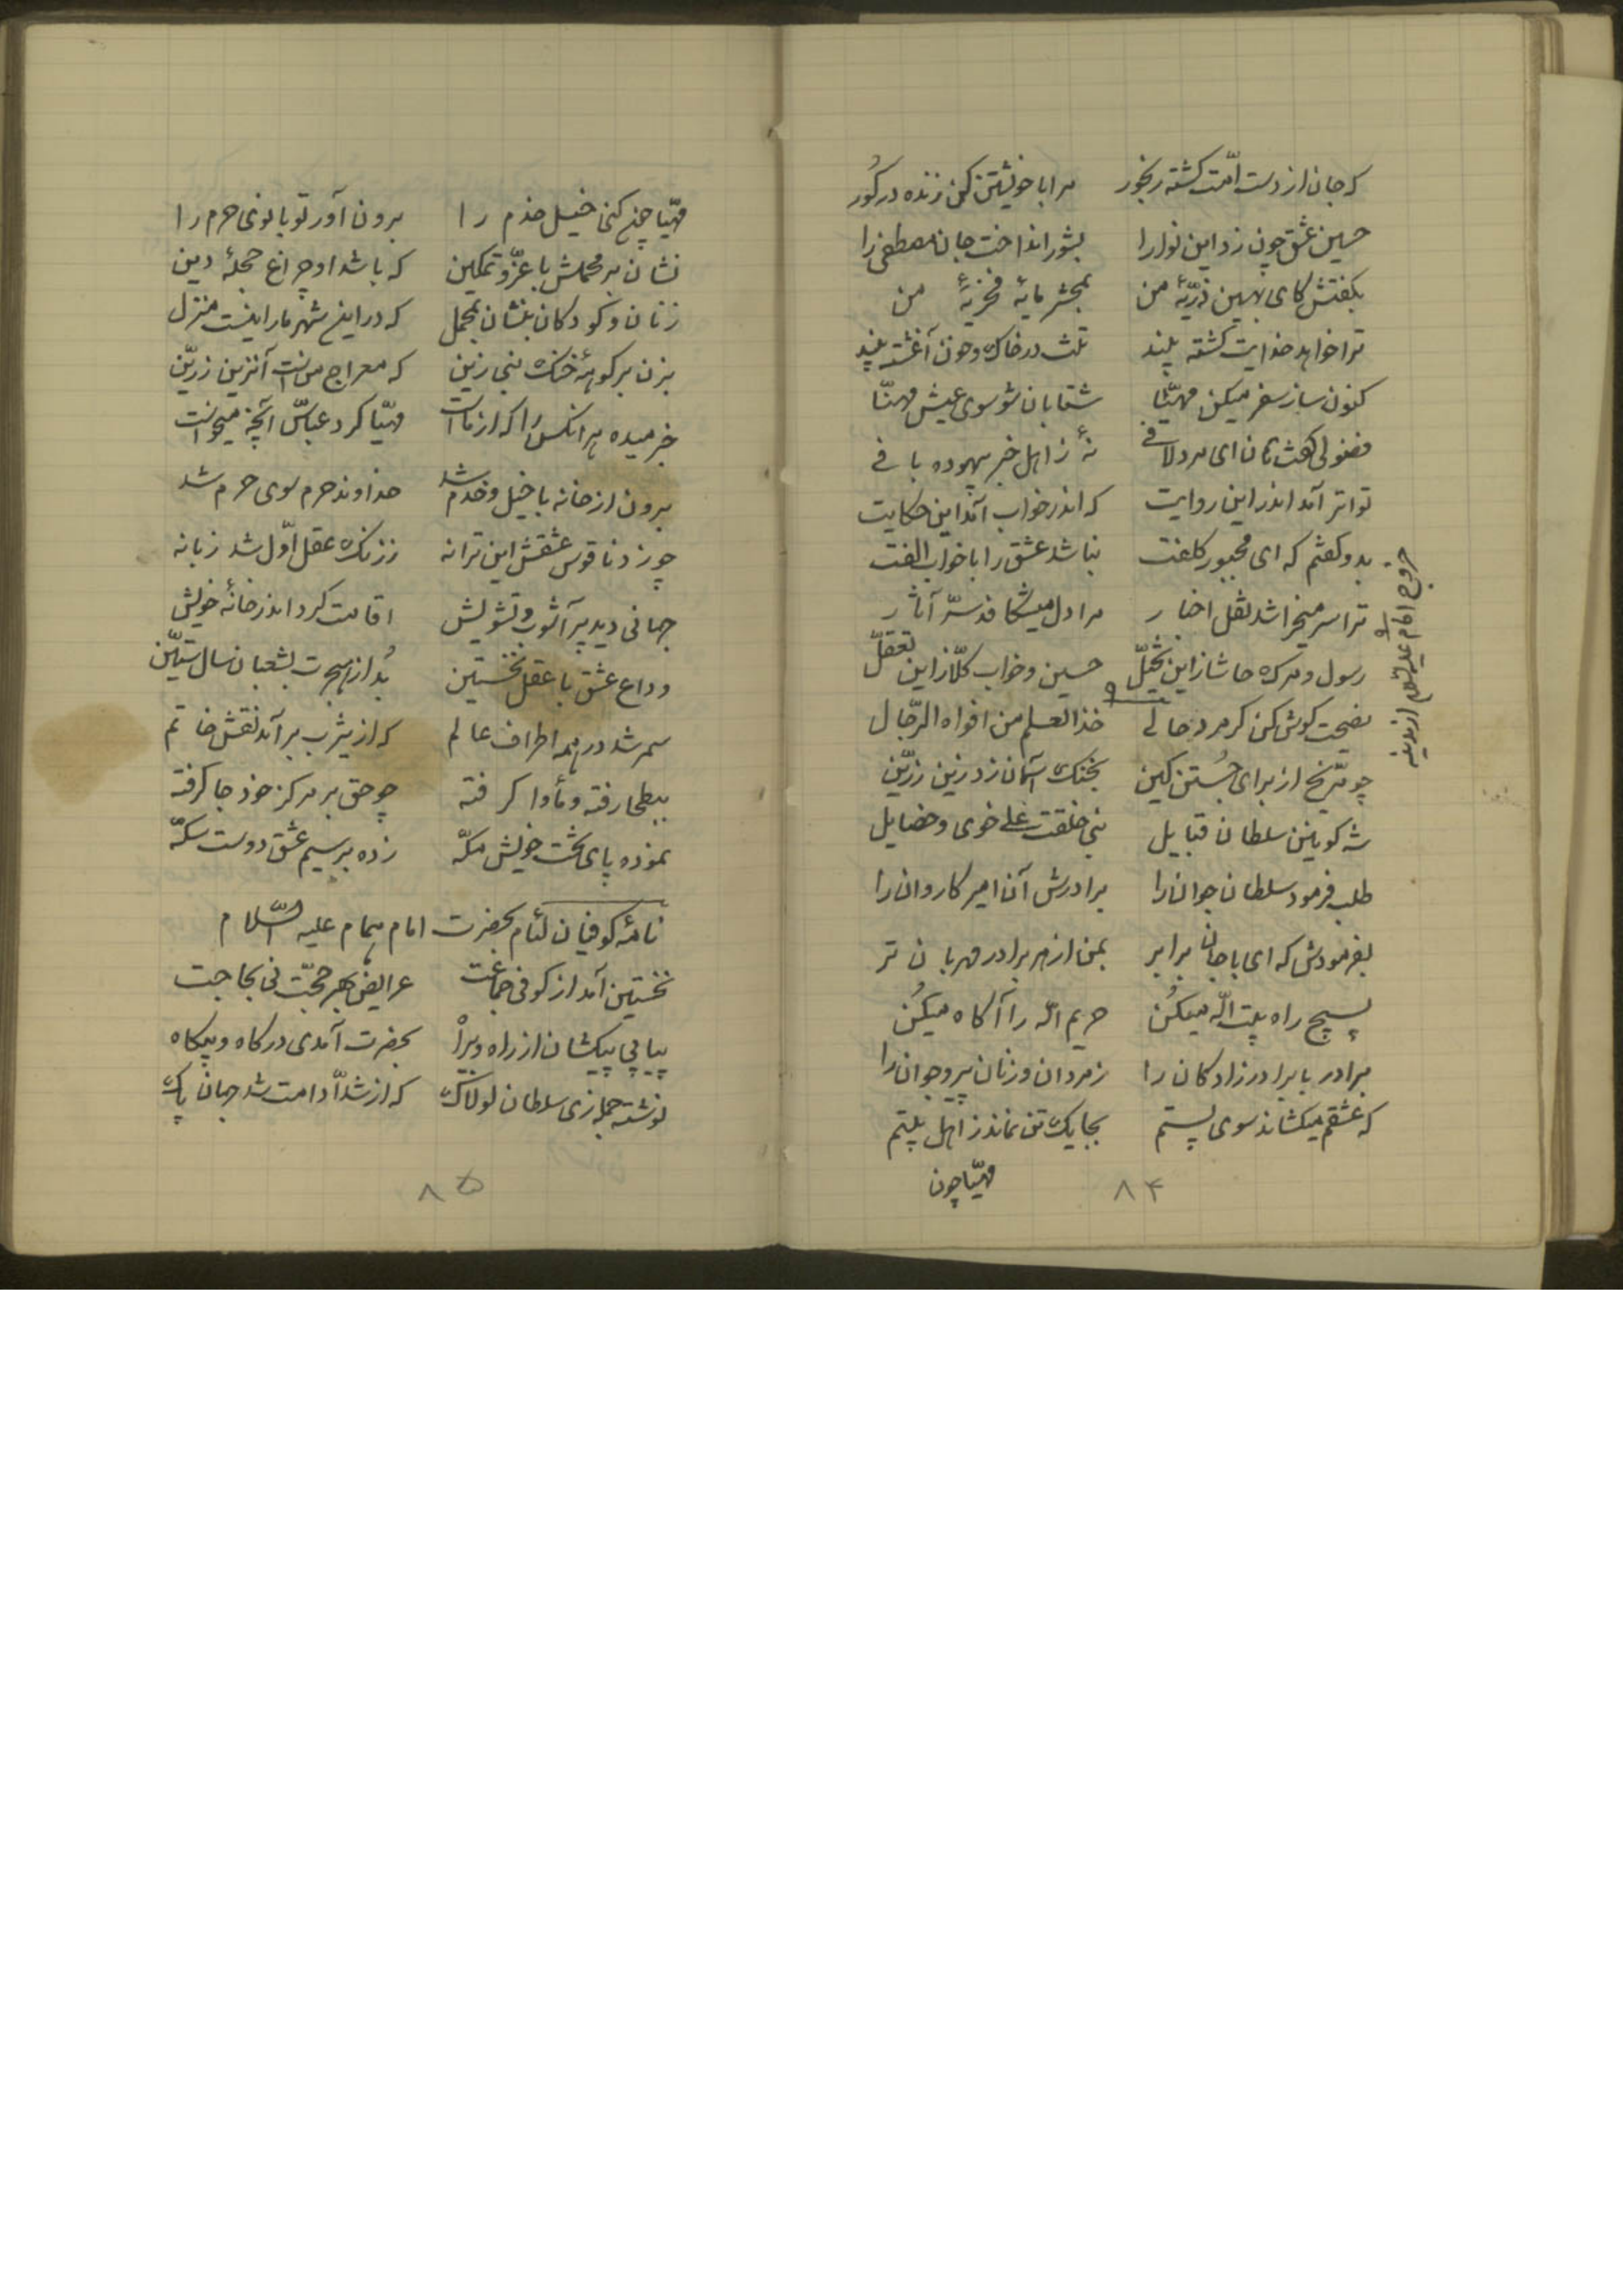 که جان از دست امّت گشته رنجور    مرا با خویشتن کن زنده در گور
حسین عشق چون زد این نوا را    بشور انداخت جان مصطفی را
بگفتش کای بهین ذرّیّهٔ من    بمحشر مایهٔ فخریّهٔ من
ترا خواهد خدایت کشته بیند    تنت در خاک و خون آغشته بیند
کنون ساز سفر میکن مهیّا    شتابان شو سوی عیش مهنّا
فضولی گفت هان ای مرد لافی    نهٔ ز اهل خبر بیهوده بافی
تواتر آمد اندر این روایت    که اندر خواب آمد این حکایت
بدو گفتم که ای مجبور کلفت    نباشد عشق را با خواب الفت
ترا سر میخراشد نقل اخبار    مرا دل میشکافد سرّ آثار
رسول و مرگ حاشا زین تخیّل    حسین و خواب کلّا زاین تعقّل
نصیحت گوش کن گر مرد حالی    خذ العلم من افواه الرّجال
خروج امام علیه السّلام از مدینه
چو مرّیخ از برای جُستن کین    بخنگ آسمان زد زین زرّین
شه کونین سلطان قبایل    نبی خلقت علی خوی و خصایل
طلب فرمود سلطان جوان را    برادرش آن امیر کاروان را
بفرمودش که ای با جان برابر    بمن از هر برادر مهربان تر
بسیج راه بیت الله میکُن    حریم الله را آگاه میکُن
برادر با برادرزادگان را    ز مردان و زنان پیر و جوان را
که عشقم میکشاند سوی پستم    بجا یک تن نماند ز اهل بیتم
مهیّا چون
۸۴
مهیّا چون کنی خیل خدم را    برون آور تو بانوی حرم را
نشان بر محملش با عزّ و تمکین    که باشد او چراغ حجلهٔ دین
زنان و کودکان بنشان بمحمل    که در این شهر ما را نیست منزل
بزن بر کوههٔ خنگ نبی زین    که معراج من است آنزین زرّین
خبر میده هر آنکس را که از ماست    مهیّا کرد عبّاس آنچه میخواست
برون از خانه با خیل و خدم شد    خداوند حرم سوی حرم شد
چو زد ناقوس عشقش این ترانه    ز زنگ عقل اوّل شد زبانه
جهانی دید پر آشوب و تشویش    اقامت کرد اندر خانهٔ خویش
وداع عشق با عقل نخستین    بُد از هجرت بشعبان سال ستّین
سمر شد در همه اطراف عالم    که از یثرب برآمد نقش خاتم
ببطحا رفته و مأوا گرفته    چو حق بر مرکز خود جا گرفته
نموده پای تخت خویش مکّه    زده بر سیم عشق دوست سکّه
نامهٔ کوفیان لئام بحضرت امام همام علیه السّلام
نخستین آمد از کوفی جماعت    عرایض بهر حجّت نی بحاجت
پیاپی پیکشان از راه و بیراه    بحضرت آمدی در گاه و بیگاه
نوشته جمله زی سلطان لولاک    که از شدّاد امت شد جهان پاک
۸۵